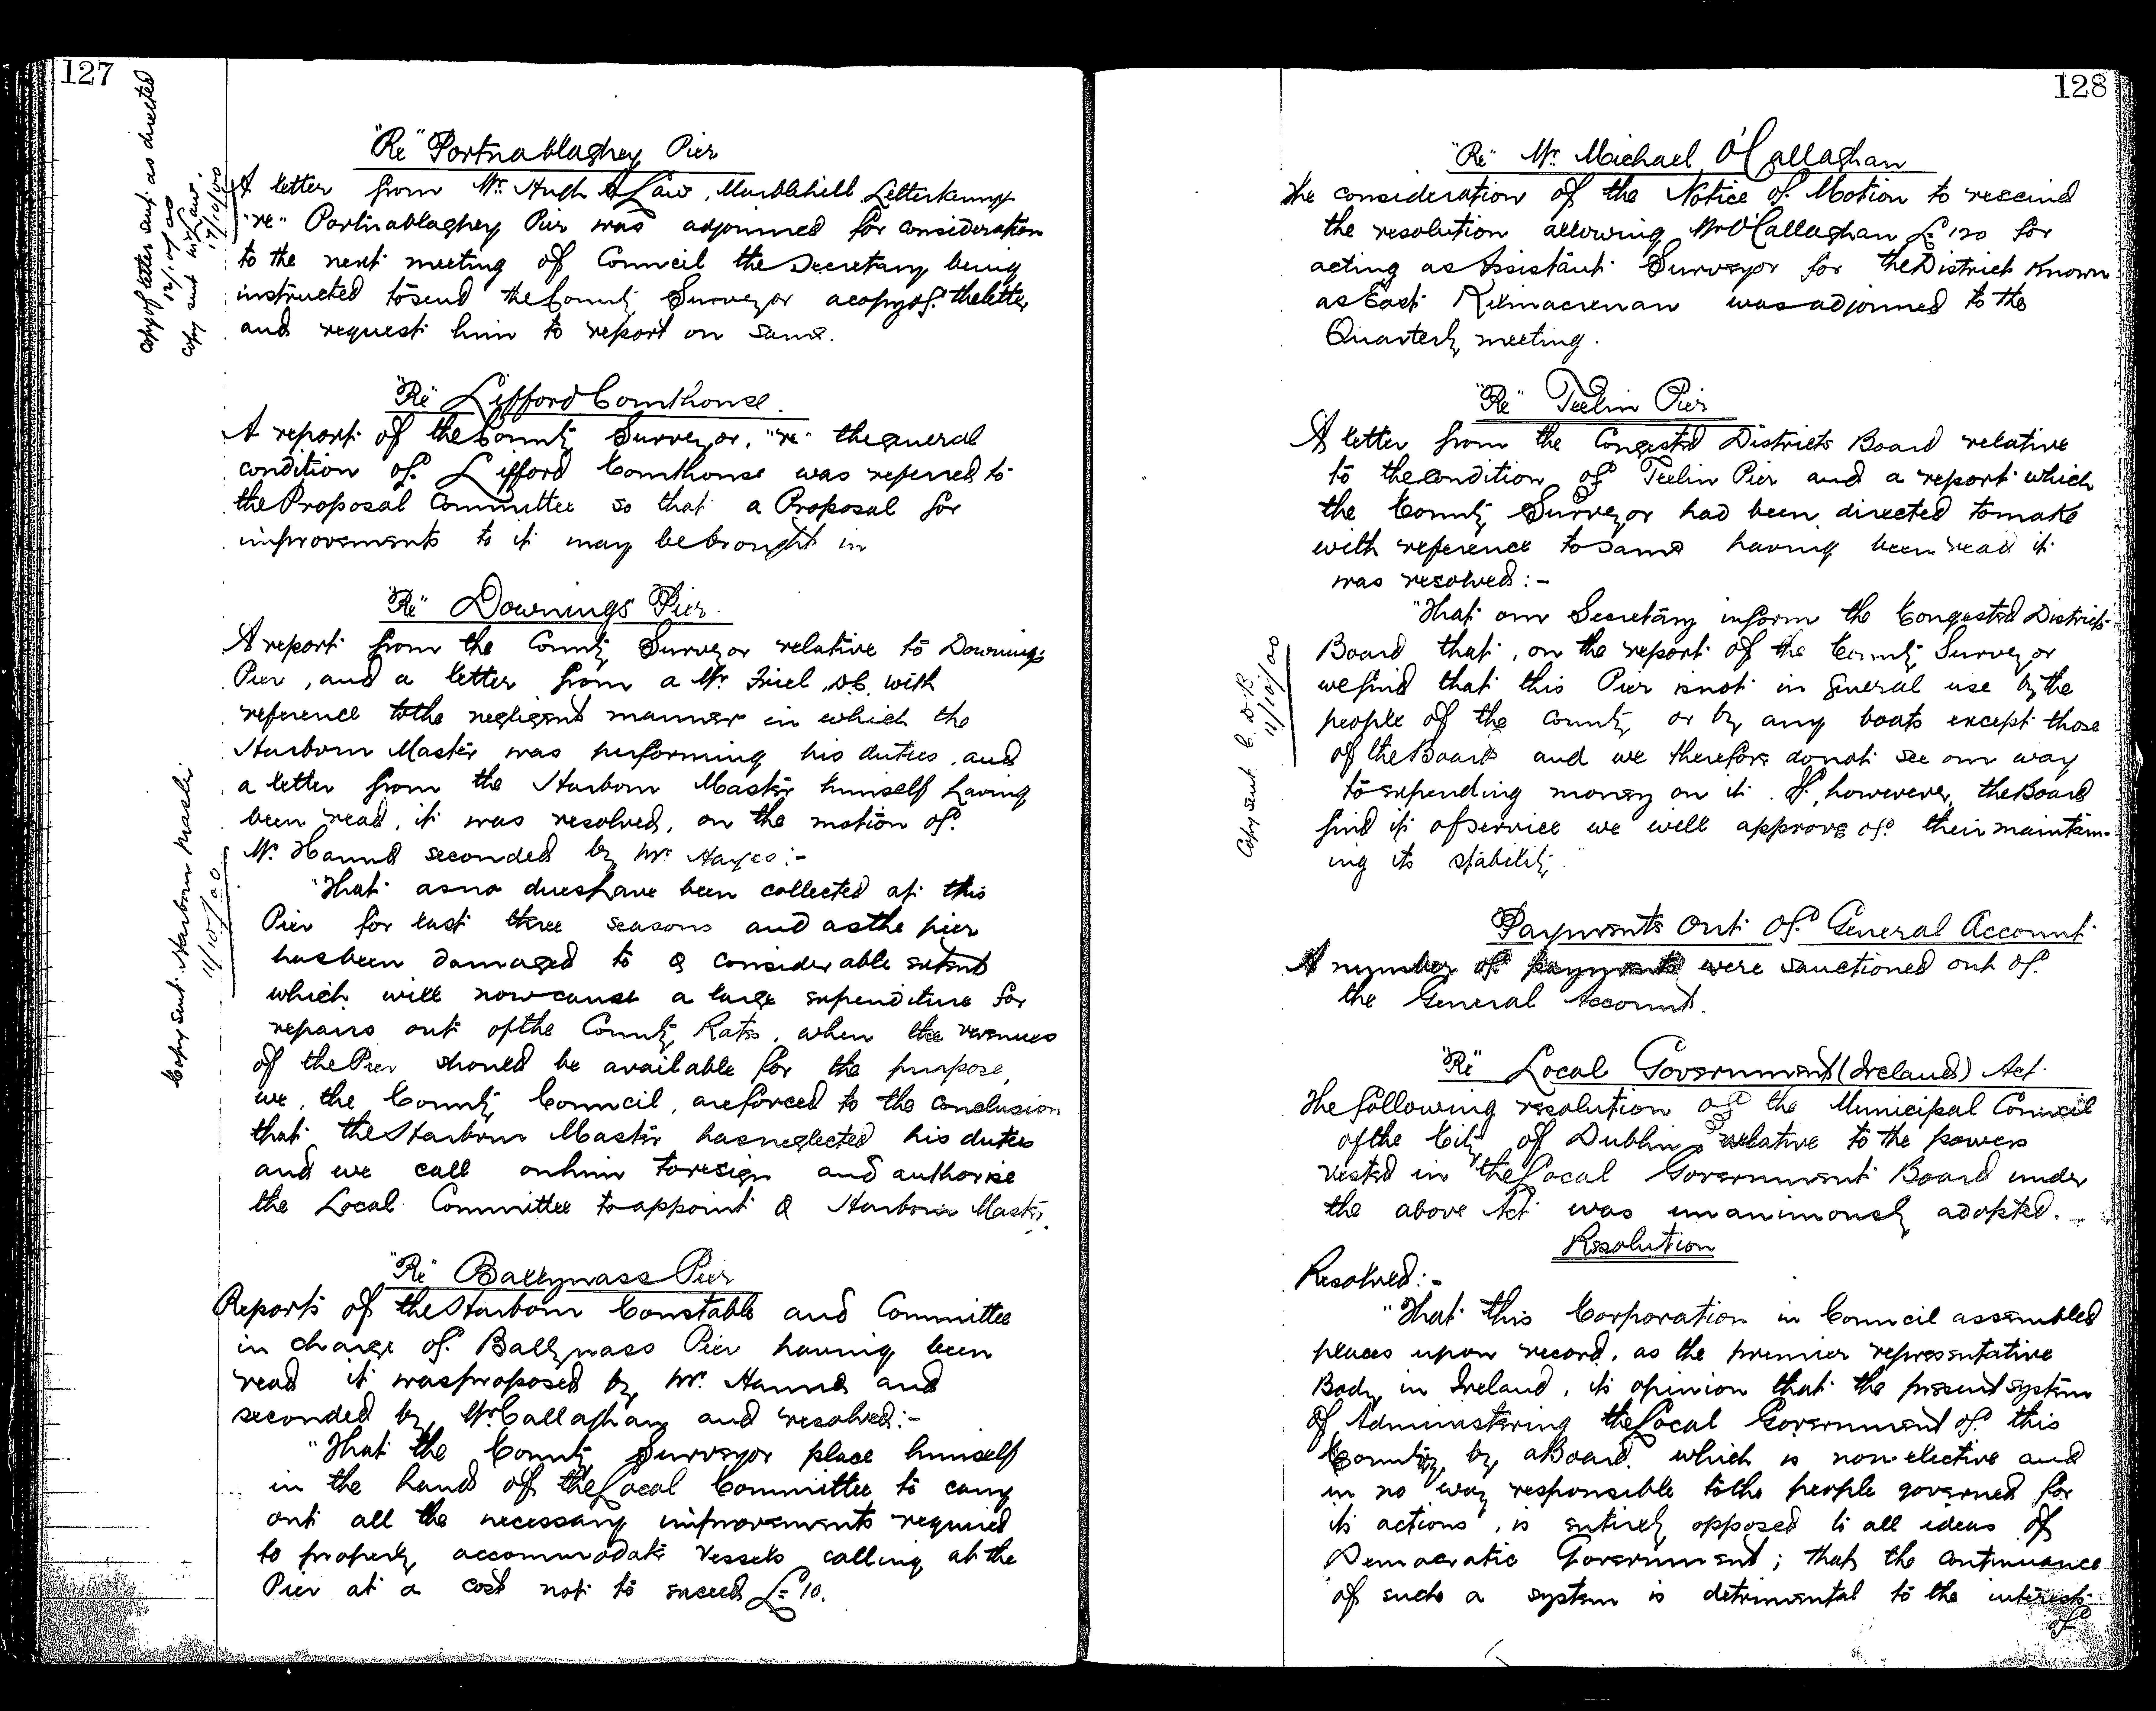 127
Copy of letter sent as directed
12/10/00
Copy sent
17/10/00
"Re" Portnablaghey Pier
A letter from Mr. Hugh A Law, Marblehill Letterkenny
"re" Portnablaghey Pier was adjourned for consideration
to the next meeting of Council the Secretary being
instructed to send the County Surveyor a copy of the letter
and request him to report on same.
"Re" Lifford Courthouse.
A report of the County Surveyor, "re" the general
condition of Lifford Courthouse was referred to
the Proposal Committee so that a Proposal for
improvements to it may be brought in
"Re" Downings Pier.
A report from the County Surveyor relative to Downings
Pier, and a letter from a Mr. Friel, D.C. with
reference to the negligent manner in which the
Harbour Master was performing his duties, and
a letter from the Harbour Master himself having
been read, it was resolved, on the motion of
Mr. Hanna seconded by Mr. Hayes:-
Copy sent Harbour Master
11/10/00
"That as no dues have been collected at this
Pier for last three seasons and as the pier
has been damaged to a considerable extent
which will now cause a large expenditure for
repairs out of the County Rates, when the revenues
of the Pier should be available for the purpose,
we, the County Council, are forced to the conclusion
that the Harbour Master has neglected his duties
and we call on him to resign and authorise
the Local Committee to appoint a Harbour Master.
"Re" Ballyness Pier
Reports of the Harbour Constable and Committee
in charge of Ballyness Pier having been
read it was proposed by Mr. Hanna and
seconded by Mr Callaghan and resolved:-
"That the County Surveyor place himself
in the hands of the Local Committee to carry
out all the necessary improvements required
to properly accommodate vessels calling at the
Pier at a cost not to exceed £10.
128
"Re" Mr. Michael O'Callaghan
The consideration of the Notice of Motion to rescind
the resolution allowing Mr O'Callaghan £120 for
acting as Assistant Surveyor for the District known
as East Kilmacrenan was adjourned to the
Quarterly meeting.
"Re" Teelin Pier
A letter from the Congested Districts Board relative
to the condition of Teelin Pier and a report which
the County Surveyor had been directed to make
with reference to same having been read it
was resolved:-
"That our Secretary inform the Congested Districts
Board that, on the report of the County Surveyor
we find that this Pier is not in general use by the
people of the County or by any boats except those
of the Board and we therefore do not see our way
to expending money on it. If, however, the Board
find it of service we will approve of their maintain-
ing its stability."
Copy sent C. D. B.
11/10/00
Payments Out of General Account
A number of payments were sanctioned out of
the General Account.
"Re" Local Government (Ireland) Act.
The following resolution of the Municipal Council
of the City of Dublin relative to the powers
vested in the Local Government Board under
the above Act was unanimously adopted.
Resolution
Resolved:-
"That this Corporation in Council assembled
places upon record, as the premier representative
Body in Ireland, its opinion that the present system
of Administering the Local Government of this
Country by a Board which is non-elective and
in no way responsible to the people governed for
its actions, is entirely opposed to all ideas of
Democratic Government; that the continuance
of such a system is detrimental to the interests
of